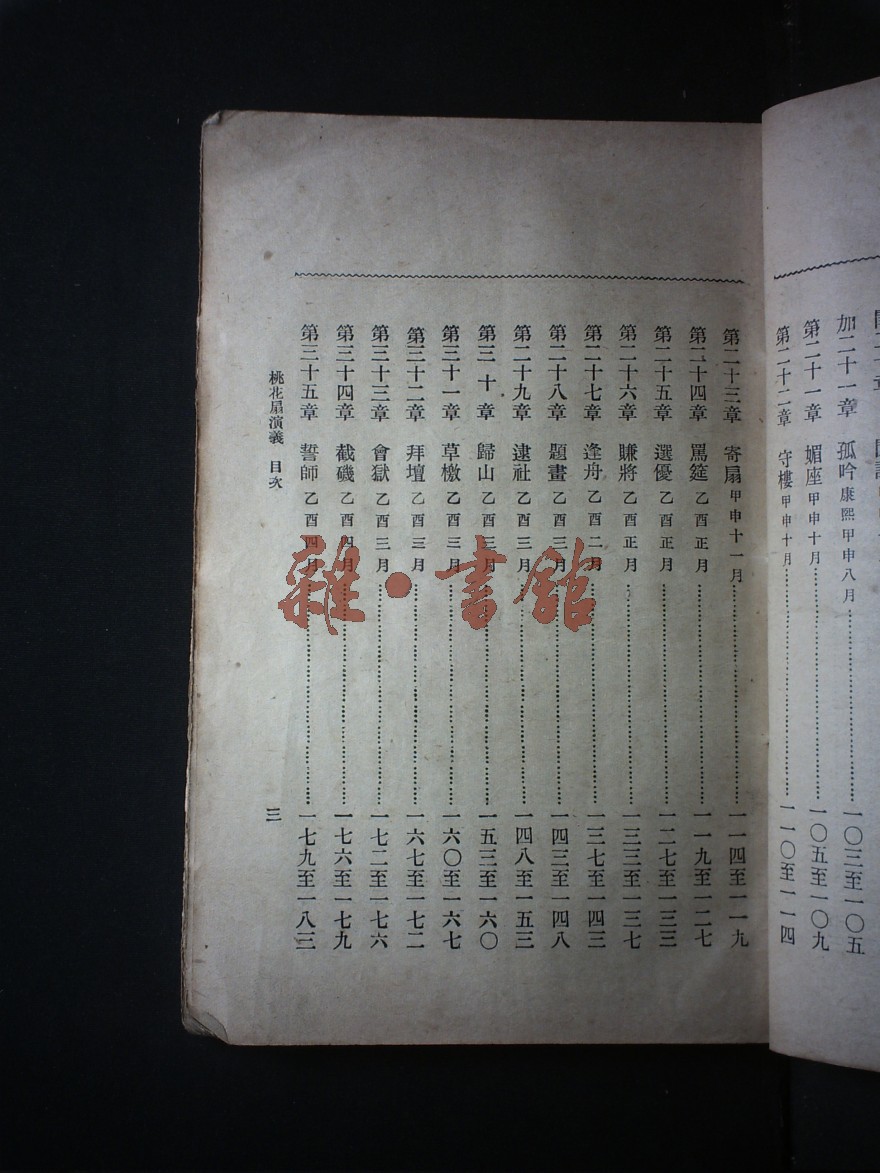 加二十一章 孤吟 康熙甲申八月 一〇三至一〇五
第二十一章 媚座 甲申十月 一〇五至一〇九
第二十二章 守樓 甲申十月 一一〇至一一四
第二十三章 寄扇 甲申十一月 一一四至一一九
第二十四章 罵筵 乙酉正月 一一九至一二七
第二十五章 選優 乙酉正月 一二七至一三三
第二十六章 賺將 乙酉正月 一三三至一三七
第二十七章 逢舟 乙酉二月 一三七至一四三
第二十八章 題畫 乙酉三月 一四三至一四八
第二十九章 逮社 乙酉三月 一四八至一五三
第三十章 歸山 乙酉三月 一五三至一六〇
第三十一章 草檄 乙酉三月 一六〇至一六七
第三十二章 拜壇 乙酉三月 一六七至一七二
第三十三章 會獄 乙酉三月 一七二至一七六
第三十四章 截磯 乙酉四月 一七六至一七九
第三十五章 誓師 乙酉四月 一七九至一八三
桃花扇演義 目次 三
雜·書館